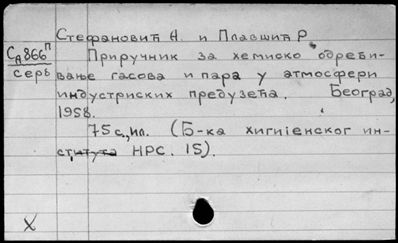 Стефановић А. и Плавшић Р.
Са866п
серб
Приручник за хемиско одређи-
вање гасова и пара у атмосфери
индустриских предузећа. Београд,
1958.
75 с., ил. (Б-ка хигијенског ин-
ститута НРС. 15).
X